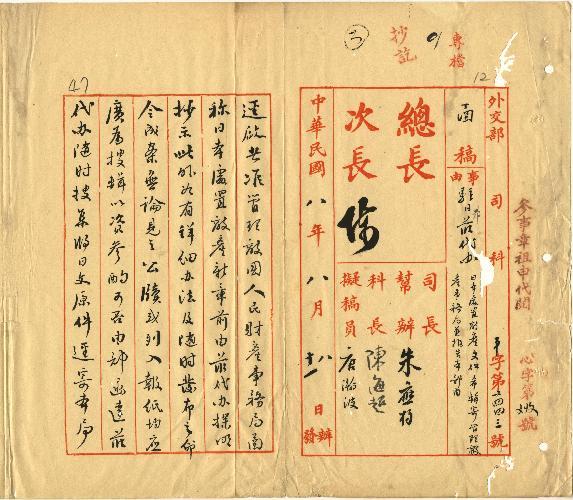 專檔
抄訖
12
外交部 司 科
函稿
事由
駐日莊代辦
總長
次長
司長
幫辦
科長
陳海超
擬稿員
中華民國八年八月十一八日辦發
參事章祖申代閱
字第二四四三號
心字第
47
逕啟者准管理敵國人民財產事務局函
稱日本處置敵產新章前由莊代辦探明
抄示此外如有詳細辦法及隨時發布之命
令成案無論見之公牘或列入報紙均應
廣爲搜輯以資參酌可否由部函達莊
代办随時搜集將日文原件逕寄本局